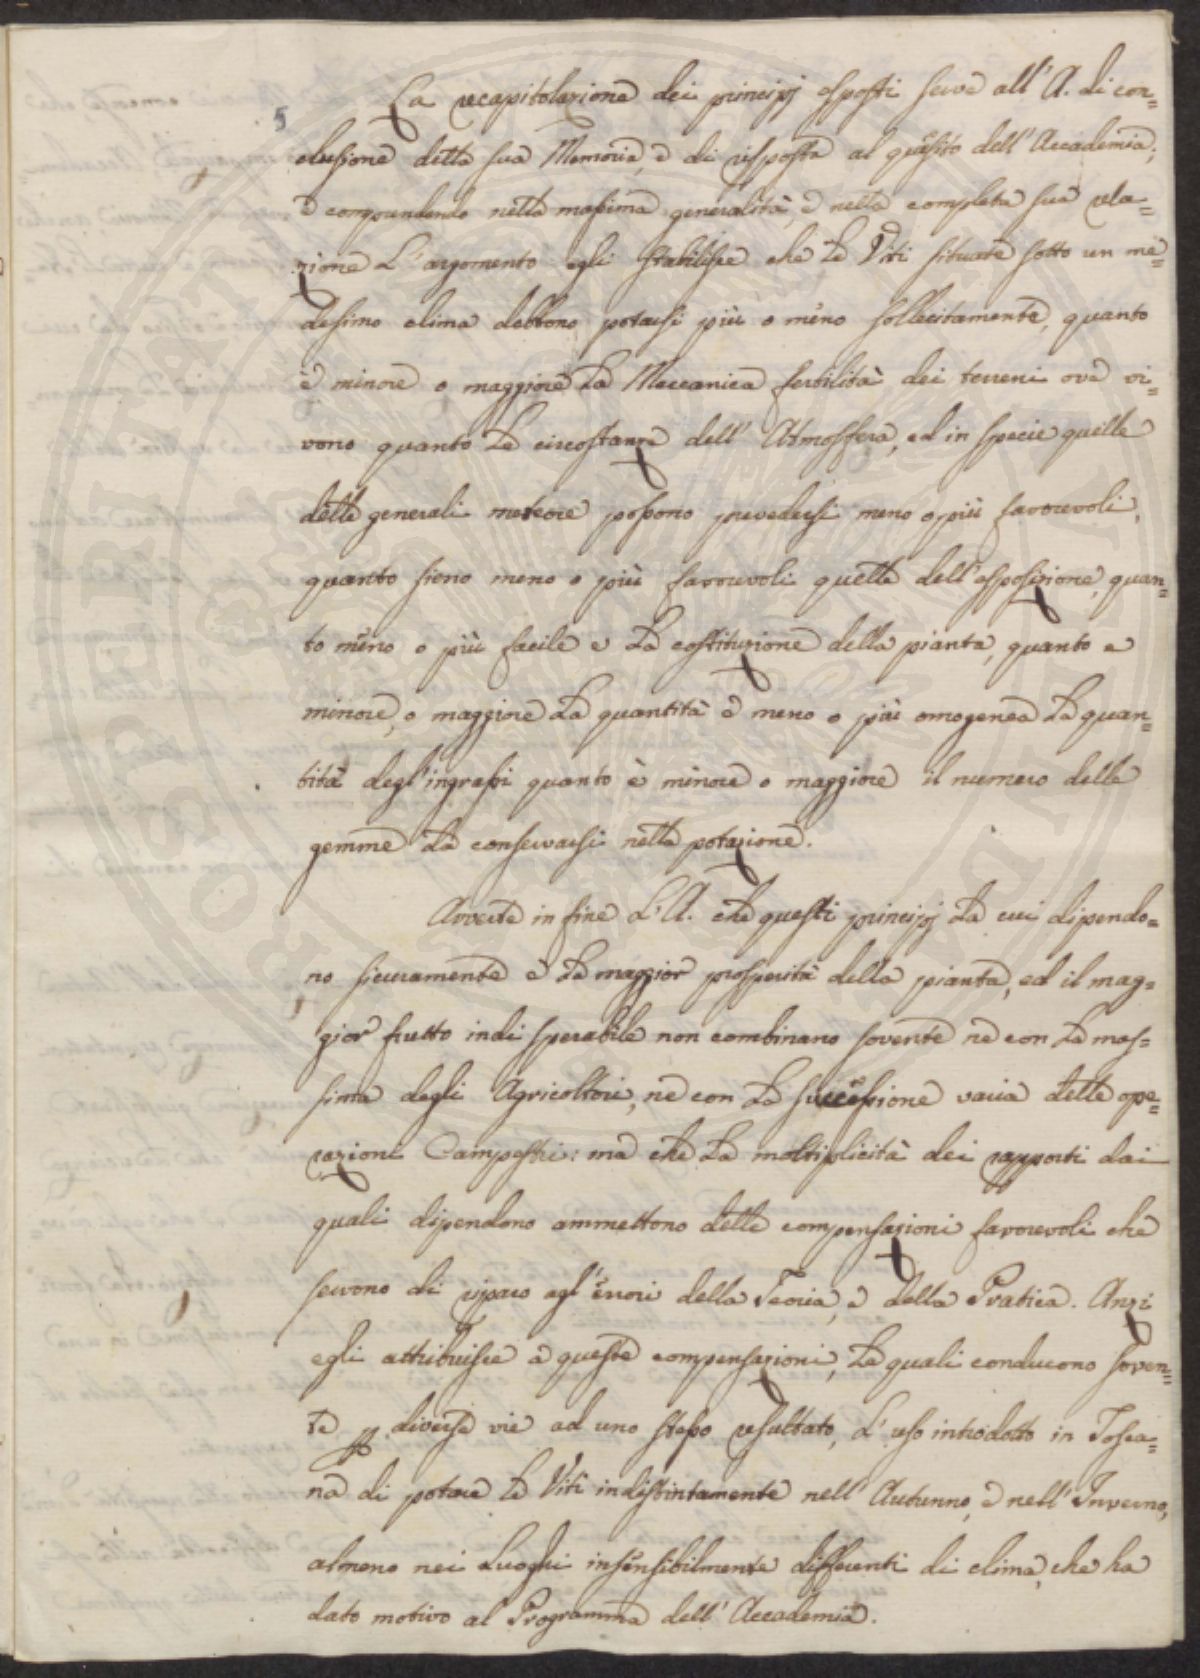 5
La recapitolazione dei principj esposti serve all'A. di con=
clusione della sua Memoria, e di risposta al quesito dell'Accademia;
e comprendendo nella massima generalità, e nella completa sua rela=
zione L'argomento egli stabilisce che Le Viti situate sotto un me=
desimo clima debbono potarsi più o meno sollecitamente, quanto
è minore o maggiore La Meccanica fertilità dei terreni ove vi=
vono quanto Le circostanze dell'Atmosfera, ed in specie quelle
delle generali meteore possono prevedersi meno o più favorevoli,
quanto sieno meno o più favorevoli quelle dell'esposizione, quan=
to meno o più facile e La costituzione della pianta, quanto e
minore, o maggiore La quantità e meno o più omogenea La quan=
tità degl'ingrassi quanto è minore o maggiore il numero delle
gemme da conservarsi nella potazione.
Avverte in fine L'A. che questi principj da cui dipendo=
no sicuramente e La maggior prosperità della pianta, ed il mag=
gior frutto indi sperabile non combinano sovente ne con La mas=
sima degli Agricoltori, ne con La successione varia delle ope=
razioni Campestri: ma che La moltiplicità dei rapporti dai
quali dipendono ammettono delle compensazioni favorevoli che
servono di riparo agl'errori della Teoria, e della Pratica. Anzi
egli attribuisce a queste compensazioni, Le quali conducono soven=
te p diverse vie ad uno stesso resultato, L'uso introdotto in Tosca=
na di potare Le Viti indistintamente nell'Autunno, e nell'Inverno,
almeno nei Luoghi insensibilmente differenti di clima, che ha
dato motivo al Programma dell'Accademia.